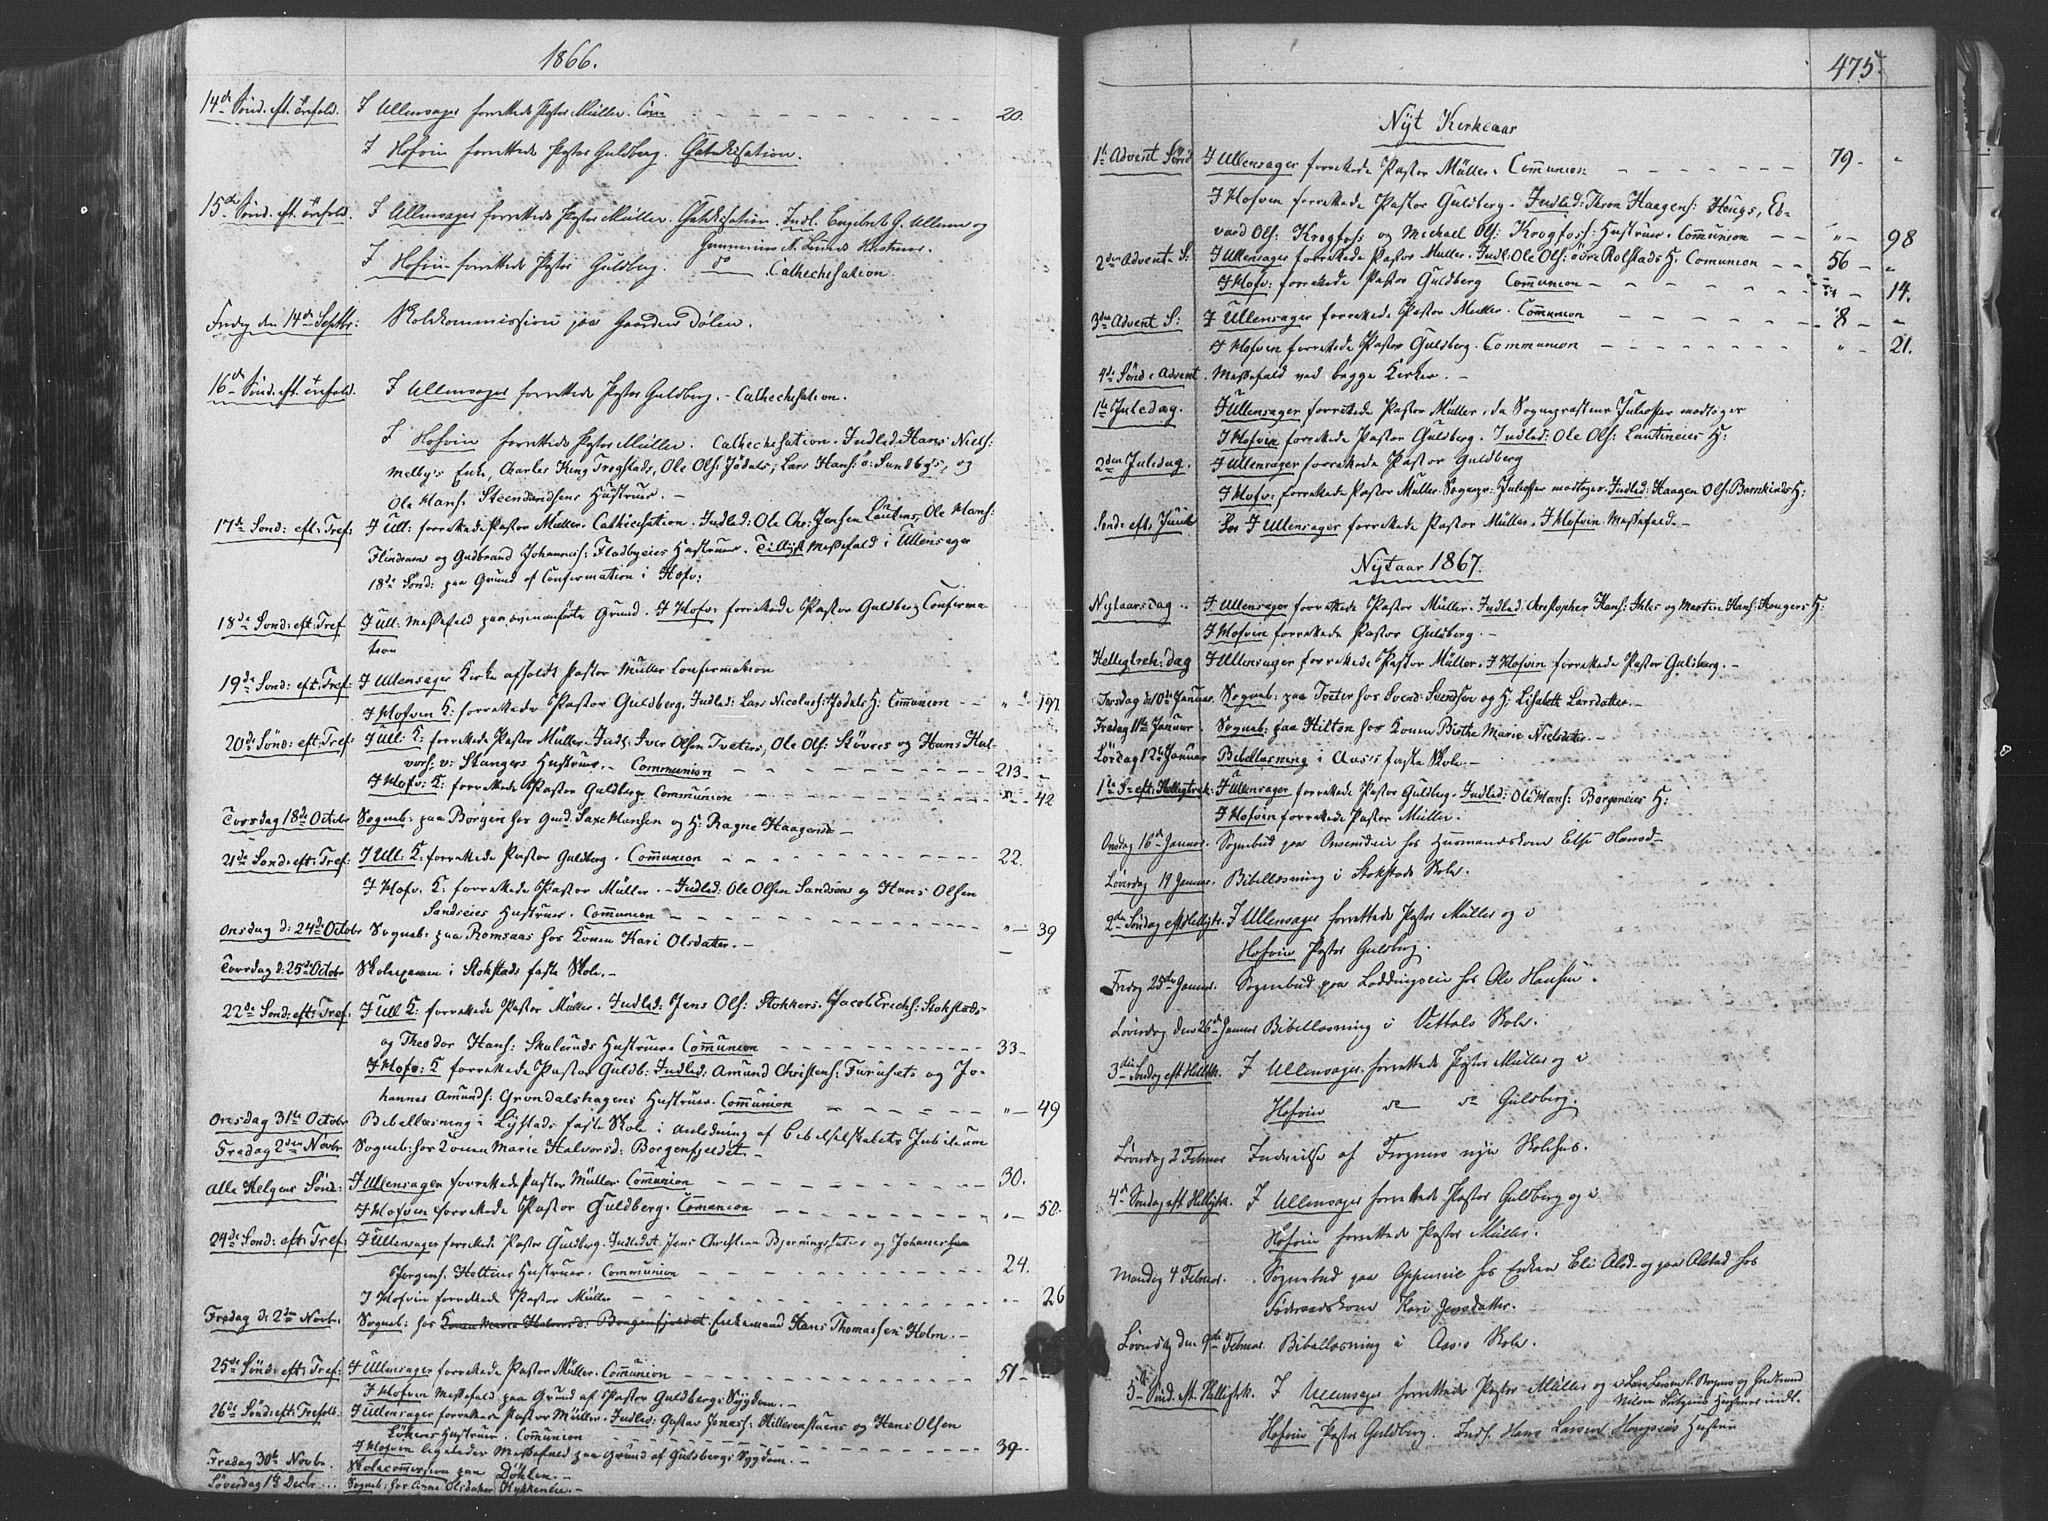 1866.
14de Sönd. eft. Trefold. I Ullensager forrettede Pastor Müller. Com 20.
I Hofvin forrettede Pastor Guldberg. Cathekisation.
15de Sönd. eft. Trefold. I Ullensager forrettede Pastor Müller. Cathekisation. Indl. Engebret G. Ullern og
N. Hustruer.
I Hofvin forrettede Pastor Guldberg. do Cathechisation.
Fredag den 14de Septbr: Skolekommission paa Gaarden Dølen.
16de Sönd. eft. Trefold. I Ullensager forrettede Pastor Guldberg. - Cathechisation.
I Hofvin forrettede Pastor Müller. Cathechisation. Indled: Hans Niels:
Melby's Enke, Charles King Trogstads, Ole Ols: Jödals, Lars Hans: ö: Sundbys, og
Ole Hans: Steensrudsens Hustruer. -
17de Sönd: eft: Tref: I Ull: forrettede Pastor Müller. Cathecisation. Indled: Ole Chr: Jensen Lautens, Ole Hans:
og Gudbrand Johanness: Fladbyeies Hustruer. Tillyst Messefald i Ullensager
18de Sönd: paa Grund af Confirmation i Hofv:
18de Sönd: eft: Tref I Ull: Messefald paa ovenanförte Grund. I Hofv: forrettede Pastor Guldberg Confirma-
tion
19de Sönd: eft: Tref: I Ullensager Kirke afholdt Pastor Müller Confirmation
I Hofven K: forrettede Pastor Guldberg. Indled: Lars Nicolais: Jödals H: Communion " 197.
20de Sönd: eft: Tref: I Ull: K: forrettede Pastor Müller. Indl: Iver Olsen Tveters, Ole Ols: Stövres og Hans Hal-
vors: v: Stangers Hustruer. - Communion 213 -
I Hofv: K: forrettede Pastor Guldberg. Communion " 42
Torsdag 18de Octobr Sogneb: paa Borgen hos Gmd. Saxe Hansen og H: Ragne Haagensd -
21de Sönd: eft: Tref: I Ull: K: forrettede Pastor Guldberg. Communion 22.
I Hofv: K: forrettede Pastor Müller. - Indled: Ole Olsen Sandsnes og Hans Olsen
Sandseies Hustruer. Communion " 39
Onsdag d: 24de Octobr Sogneb: paa Romsaas hos Konen Kari Olsdatter. -
Torsdag d: 25de Octobr Skolexamen i Stokstads faste Skole. -
22de Sönd: eft: Tref. I Ull K: forrettede Pastor Müller. Indled: Jens Ols: Stokkers. Jacob Erichs: Stokstads-
og Theodor Hans: Skaleruds Hustruer. Communion 33 -
I Hofv: K forrettede Pastor Guldb: Indled: Amund Christens: Furusets og Jo-
hannes Amunds: Gröndalshagens Hustruer. Communion " 49
Onsdag 31te Octobr Bibellæsning i Lystads faste Skole i Anledning af Bibelselskabets Jubilæum
Fredag 2den Novbr Sogneb: hos Konen Marie Halvorsd: Borgenfjeldet. -
Alle Helgens Sönd: I Ullensager forrettede Pastor Müller Communion 30.
I Hofven forrettede Pastor Guldberg. Communion " 50.
24de Sönd: eft: Tref: I Ullensager forrettede Pastor Guldberg. Indledet Jens Christian Bjerningstaties og Johannes
Jörgens. Holties Hustruer. Communion 24.
I Hofven forrettede Pastor Müller 26
Fredag d: 2den Novbr. Sogneb: hos Konen Marie Halvorsd: Borgenfjeldet Enkemand Hans Thomassen Holm. -
25de Sönd: eft: Tref: I Ullensager forrettede Pastor Müller. Communion 51 -
I Hofven Messefald paa Grund af Pastor Guldbergs Sygdom. -
26de Sönd: eft: Trefold: I Ullensager forrettede Pastor Müller. Indled: Gustav Jonass: Hillerenstuens og Hans Olsen
Hustruer. Communion 39 -
I Hofven ligeledes Messefald paa Grund af Guldbergs Sygdom. -
Fredag 30te Novbr. Skolecommission paa Döhlen. -
Löverdag 1ste Decbr Sogneb: hos Anne Olsdatter Hykkeneie. -
475.
Nyt Kirkeaar
1te Advent Sönd I Ullensager forrettede Pastor Müller. Communion 79 - "
I Hofven forrettede Pastor Guldberg. Indled: Thron Haagens: Haugs, Ed-
vard Ols: Krogfoss og Michael Ols: Krogfoss: Hustruer. Communion " 98
2den Advent S: I Ullensager forrettede Pastor Müller. Indl: Ole Ols: övre Rolstads H. Comunion 56 - "
I Hofv: forrettede Pastor Guldberg Communion " 14.
3die Advent S: I Ullensager forrettede Pastor Müller. Communion 8 - "
I Hofven forrettede Pastor Guldberg. Communion " 21.
4de Sönd i Advent. Messefald ved begge Kirker. -
1te Juledag. I Ullensager forrettede Pastor Müller, da Sognepræsten Juleoffer modtoger
I Hofven forrettede Pastor Guldberg. Indled: Ole Ols: Lautineies H:
2den Juledag. I Ullensager forrettede Pastor Guldberg
I Hofv: forrettede Pastor Müller. Sognepr: Juleoffer modtoger. Indled: Haagen Ols: Bamkinds H:
Sönd: eft: Juul I Ullensager forrettede Pastor Müller. I Hofvin Messefald. -
Nytaar 1867.
Nytaarsdag I Ullensager forrettede Pastor Müller. Indled: Christopher Hans: Ihles og Martin Hans: Haugers H:
I Hofven forrettede Pastor Guldberg. -
Helligtrek: dag I Ullensager forrettede Pastor Müller. I Hofvin forrettede Pastor Guldberg. -
Torsdag d: 10de Januar. Sogneb: paa Tveter hos Svend Svendsen og H: Lisabeth Larsdatter. -
Fredag 11te Januar. Sogneb: paa Hilton hos Konen Birthe Marie Nielsdatter. -
Lördag 12te Januar Bibellæsning i Aasis faste Skole. -
1te S: eft: Helligtrek: I Ullensager forrettede Pastor Guldberg. Indled: Ole Hans: Borgeneies H:
I Hofvin forrettede Pastor Müller.
Onsdag 16de Januar. Sognebud paa hos Huusmandskone Else Hansd-
Löverdag 19 Januar. Bibellæsning i Stokstads Skole.
2den Söndag eft Helligtr. I Ullensager forrettede Pastor Müller og i
Hofvin Pastor Guldberg.
Fredag 25de Januar. Sognebud paa hos Ole Hansen.
Löverdag den 26de Januar Bibellæsning i Skole.
3die Söndag eft Helligtr. I Ullensager forrettede Pastor Müller og i
Hofvin do do Guldberg.
Löverdag 2 Februar Indvielse af Frogners nye Skolehus.
4de Söndag eft Helligtr. I Ullensager forrettede Pastor Guldberg og i
Hofvin forrettede Pastor Müller.
Mandag 4 Februar. Sognebud paa hos Enken Eli Olsd. og paa Alstad hos
Föderaadskone Kari Jensdatter.
Löverdag den 9de Februar. Bibellæsning i Aasis Skole.
5te Sönd. eft. Helligtrk. I Ullensager forrettede Pastor Müller og i Lars Larsen og Gudbrand
Hustruer indl.
Hofvin Pastor Guldberg. Indl. Hans Larsens Hustru